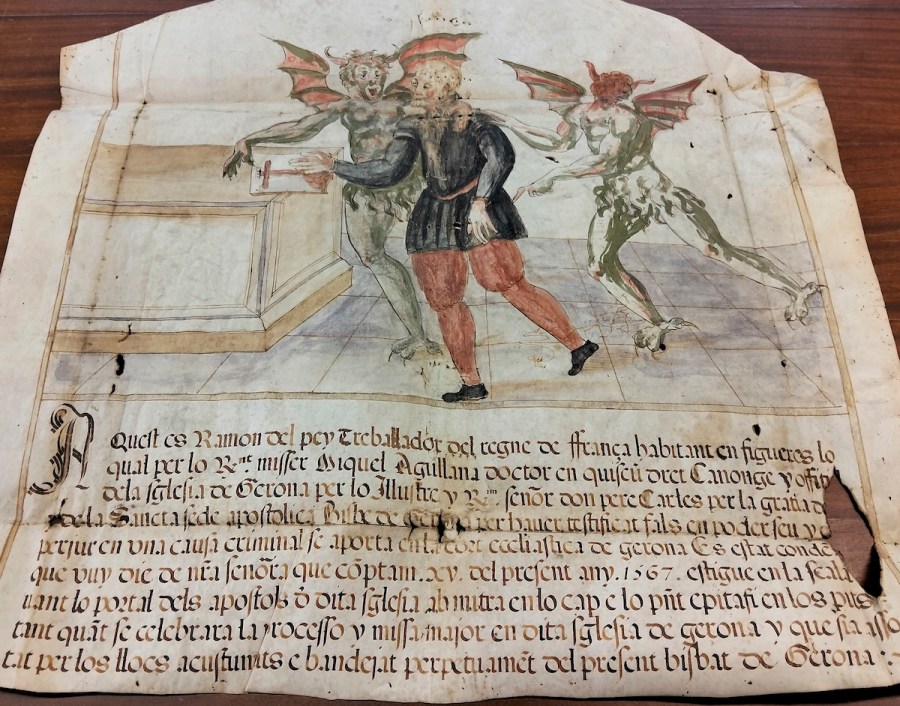 AQuest es Ramon del pey Treballador del regne de ffrança habitant en figueres lo
qual per lo R.nt misser Miquel Agullana doctor en quiscu dret Canonge y offi
dela sglesia de Gerona per lo Illustre y R.m señor don pere Carles per la gratia d
de la Sancta sede apostolica Bisbe de Gerona per haver testificat fals en poder seu y
perjur en vna causa criminal se aporta en la cort ecclesiastica de gerona Es estat conde
que vuy die de nr̃a señora que cõptam .xv. del present any .1567. estigue en la scala
uant lo portal dels apostols d dita sglesia ab mitra en lo cap e lo pñt epitafi en los pits
tant quãt se celebrara la processo y missa maior en dita sglesia de gerona y que sia asso
tat per los llocs acustumats e bandejat perpetuamẽt del present bisbat de Gerona